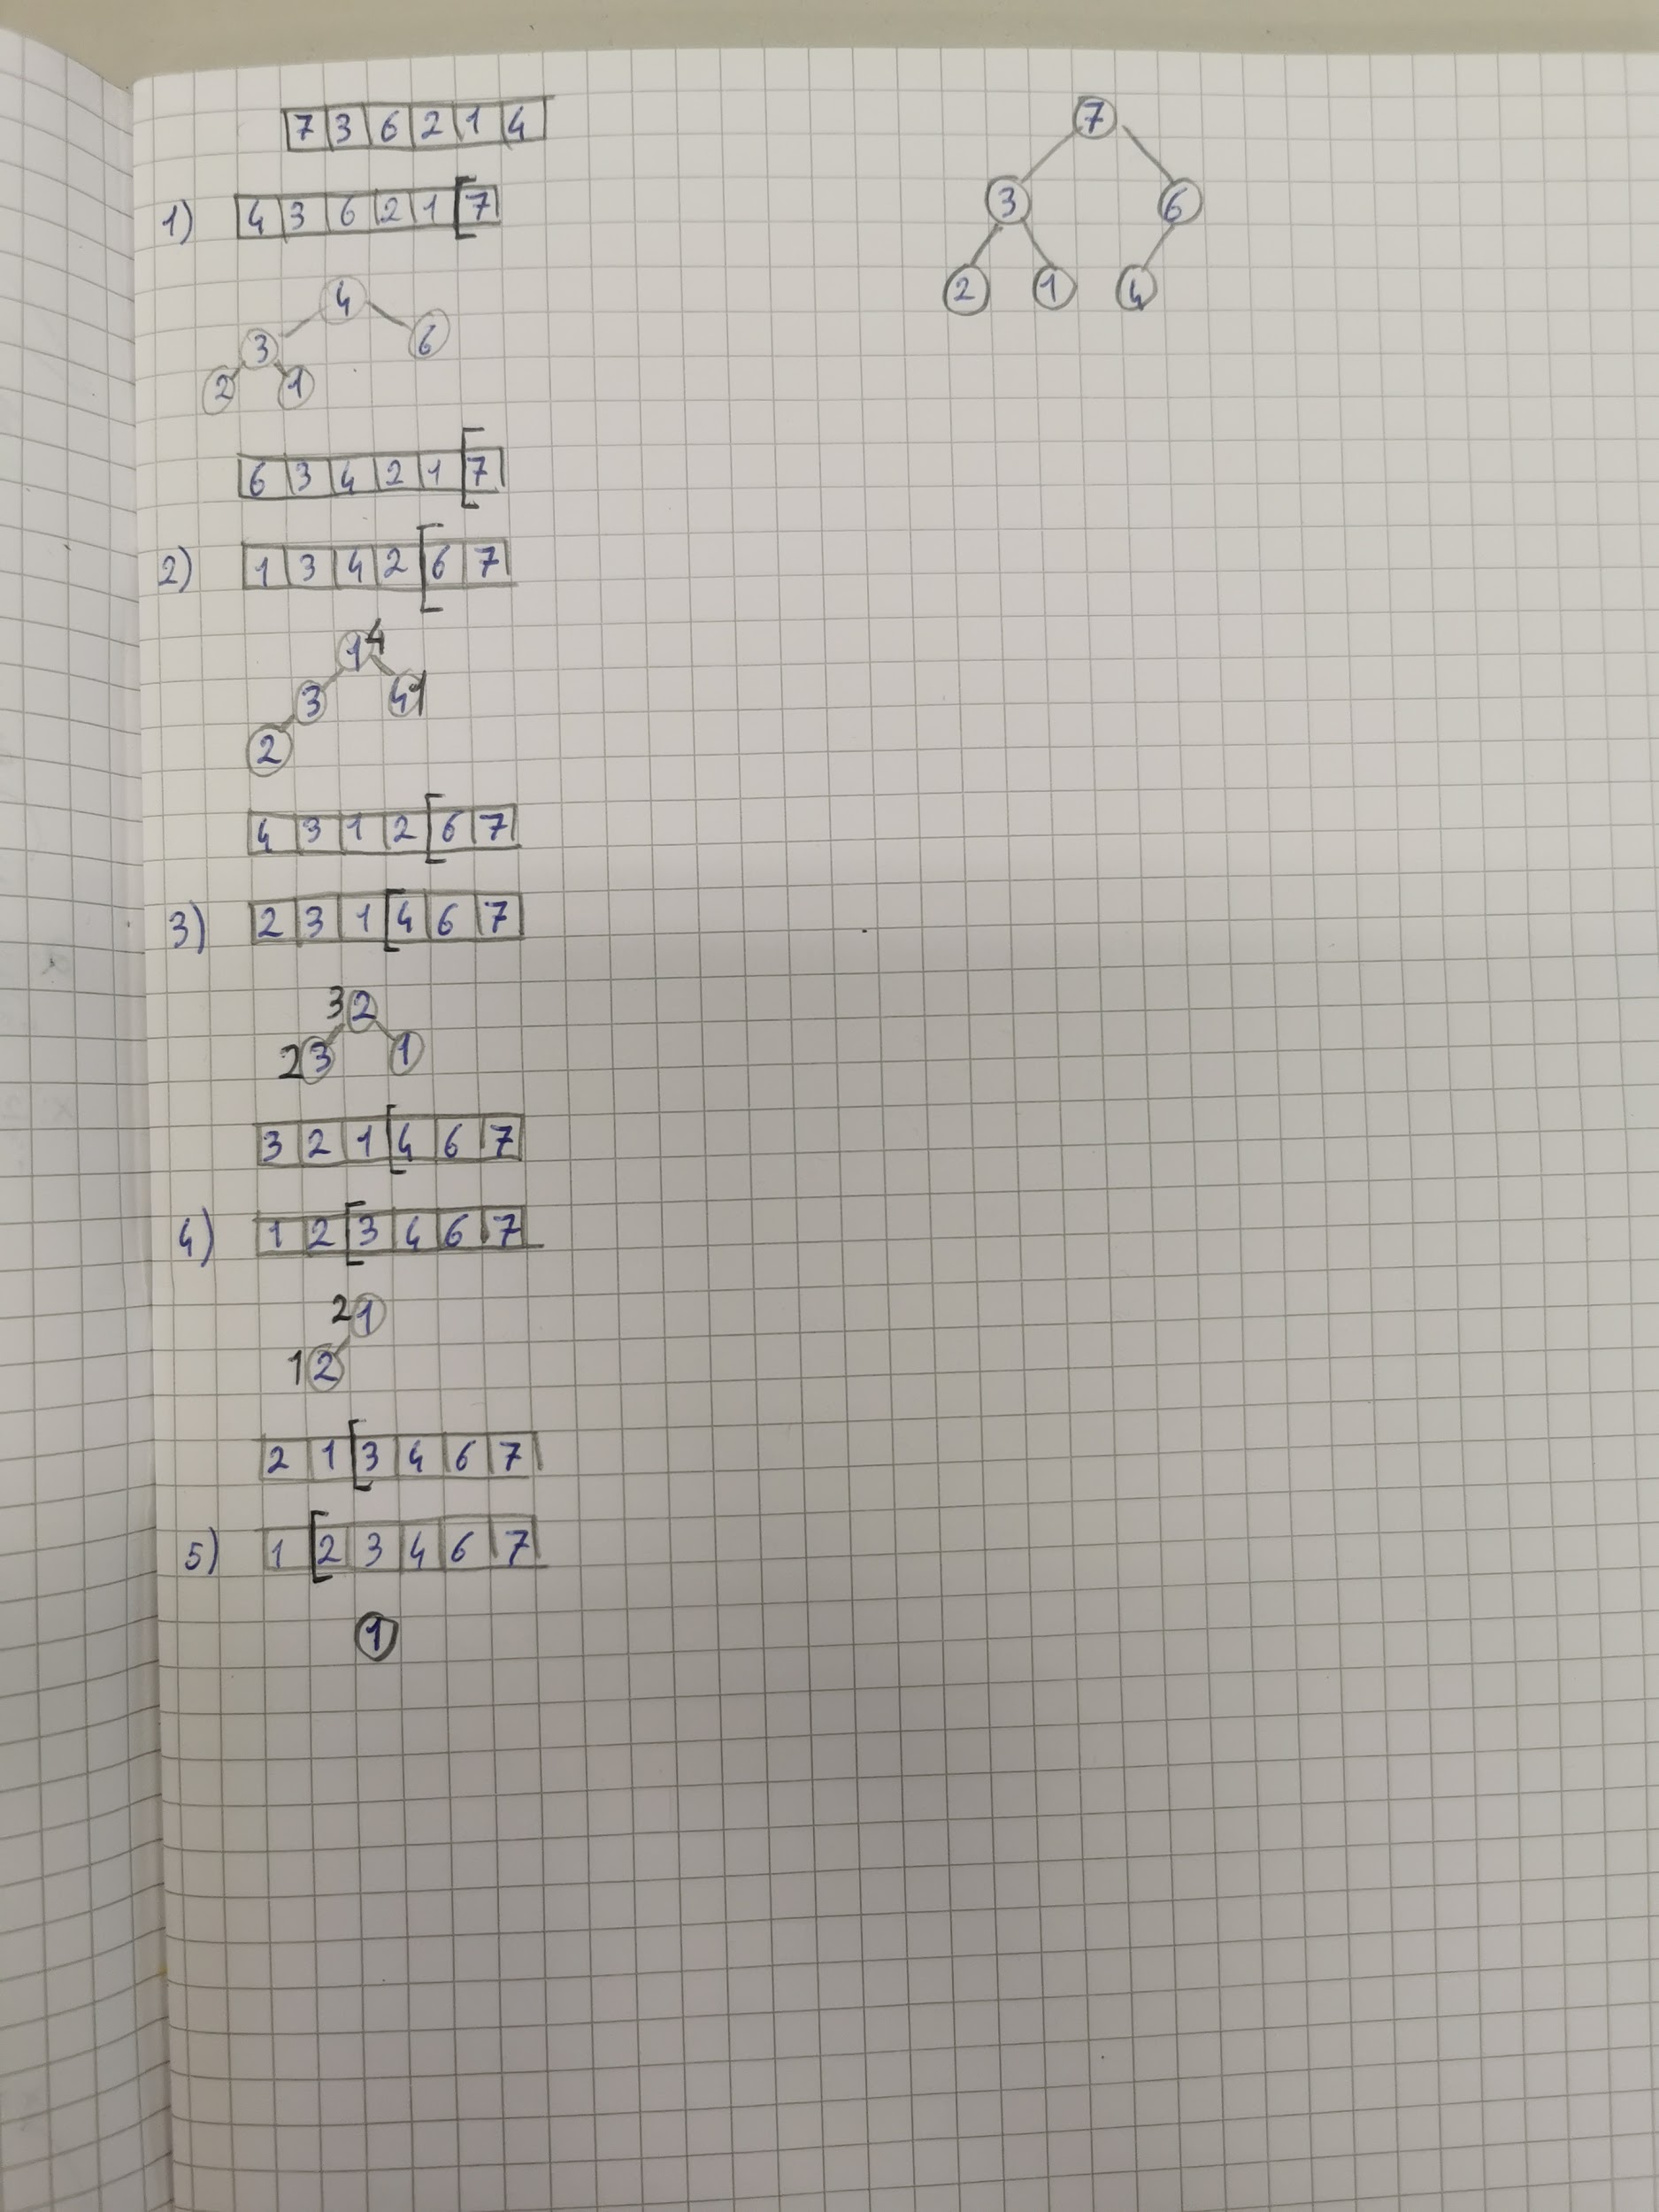 7 3 6 2 1 4
1) 4 3 6 2 1 [7
4
3 6
2 1
6 3 4 2 1 [7
2) 1 3 4 2 [6 7
1 4
3 4 1
2
4 3 1 2 [6 7
3) 2 3 1 [4 6 7
3 2
2 3 1
3 2 1 [4 6 7
4) 1 2 [3 4 6 7
2 1
1 2
2 1 [3 4 6 7
5) 1 [2 3 4 6 7
1
7
3 6
2 1 4